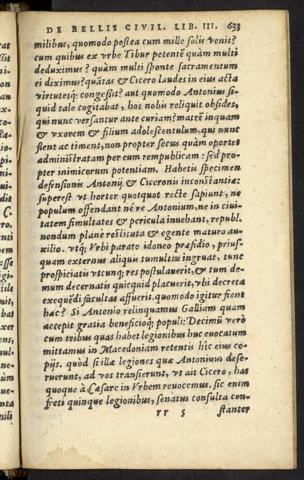 DE BELLIS CIVIL. LIB. III. 633
milibus, quomodo postea cum mille solis venit?
cum quibus ex vrbe Tibur petentē quàm multi
deduximus? quàm multi sponte sacramentum
ei diximus? quātas & Cicero laudes in eius acta
virtutesq́; congeßit? aut quomodo Antonius si-
quid tale cogitabat, hos nobis reliquit obsides,
qui nunc versantur ante curiam? matrē inquam
& vxorem & filium adolescentulum, qui nunc
flent ac timent, non propter secus quàm oportet
administratam per eum rempublicam: sed pro-
pter inimicorum potentiam. Habetis specimen
defensionis Antonij & Ciceronis inconstantiæ:
superest vt horter quotquot rectè sapiunt, ne
populum offendant né ve Antonium, ne in ciui-
tatem simultates & pericula inuehant, republ.
nondum planè restituta & egente maturo au-
xilio. vtq́; Vrbi parato idoneo præsidio, prius-
quam externus aliquis tumultus ingruat, tunc
prospiciatis vtcunq́; res postulauerit, & tum de-
mum decernatis quicquid placuerit, vbi decreta
exequēdi facultas affuerit. quomodo igitur fient
hæc? Si Antonio relinquamus Galliam quam
accepit gratia beneficioq́; populi: Decimū verò
cum tribus quas habet legionibus huc euocatum
mittamus in Macedoniam retentis hîc eius co-
pijs. quòd si illæ legiones quæ Antonium dese-
ruerunt, ad vos transierunt, vt ait Cicero, has
quoque à Cæsare in Vrbem reuocemus. sic enim
freti quinque legionibus, senatus consulta con-
rr 5 stanter